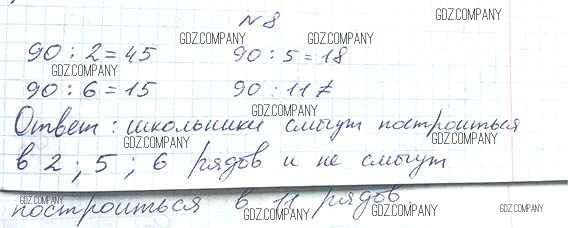 N 8
90 : 2 = 45 90 : 5 = 18
90 : 6 = 15 90 : 11 ≠
Ответ: школьники смогут построиться
в 2 ; 5 ; 6 рядов и не смогут
построиться в 11 рядов.
GDZ.COMPANY
GDZ.COMPANY
GDZ.COMPANY
GDZ.COMPANY
GDZ.COMPANY
GDZ.COMPANY
GDZ.COMPANY
GDZ.COMPANY
GDZ.COMPANY
GDZ.COMPANY
GDZ.COMPANY
GDZ.COMPANY
GDZ.COMPANY